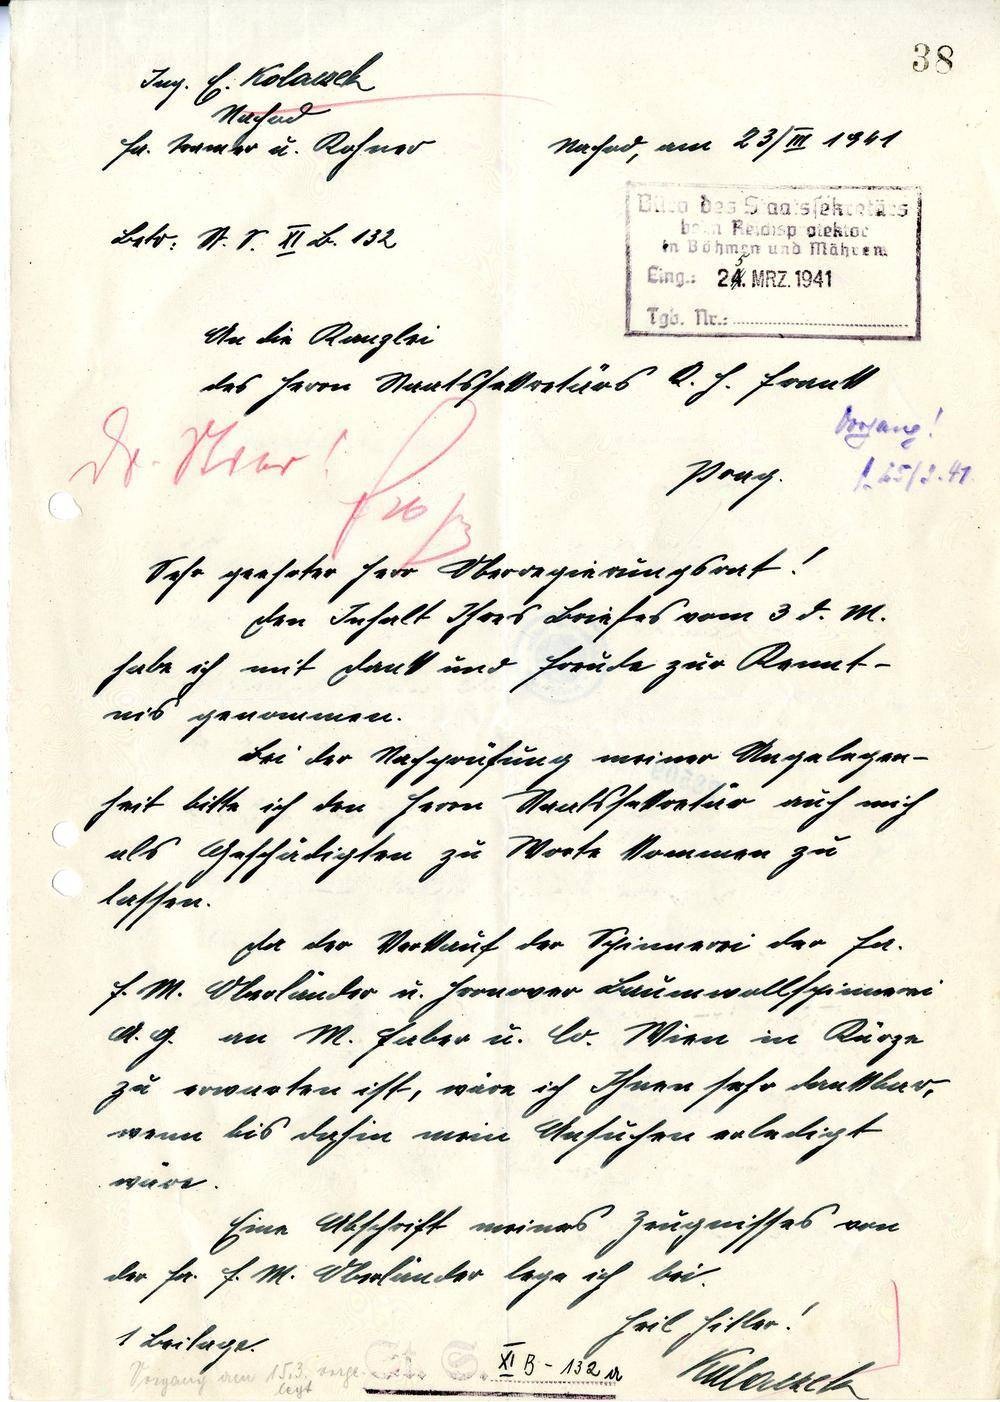 38
Ing. E. Kolaczek
Nachod
Fa. Kramer u. Rohner
Nachod, am 23/III 1941
Büro des Staatssekretärs
beim Reichsprotektor
in Böhmen und Mähren
Eing.: 25. MRZ. 1941
Tgb. Nr.:
Betr: St. S. XI B. 132
An die Kanzlei
des Herrn Staatssekretärs K. H. Frank
Vorgang!
25/3. 41
Prag.
Sehr geehrter Herr Oberregierungsrat!
Den Inhalt Ihres Briefes vom 3 d. M.
habe ich mit Dank und Freude zur Kennt-
nis genommen.
Bei der Nachprüfung meiner Angelegen-
heit bitte ich den Herrn Staatssekretär auch mich
als Geschädigten zu Worte kommen zu
lassen.
Da der Verkauf der Spinnerei der Fa.
F. M. Oberländer u. Hronover Baumwollspinnerei
A. G. an M. Faber u. Co. Wien in Kürze
zu erwarten ist, wäre ich Ihnen sehr dankbar,
wenn bis dahin mein Ansuchen erledigt
wäre.
Eine Abschrift meines Zeugnisses von
der Fa. F. M. Oberländer lege ich bei.
Heil Hitler!
1 Beilage.
Kolaczek
Vorgang am 15.3. vorge-
legt
St. S. XI B - 132 a